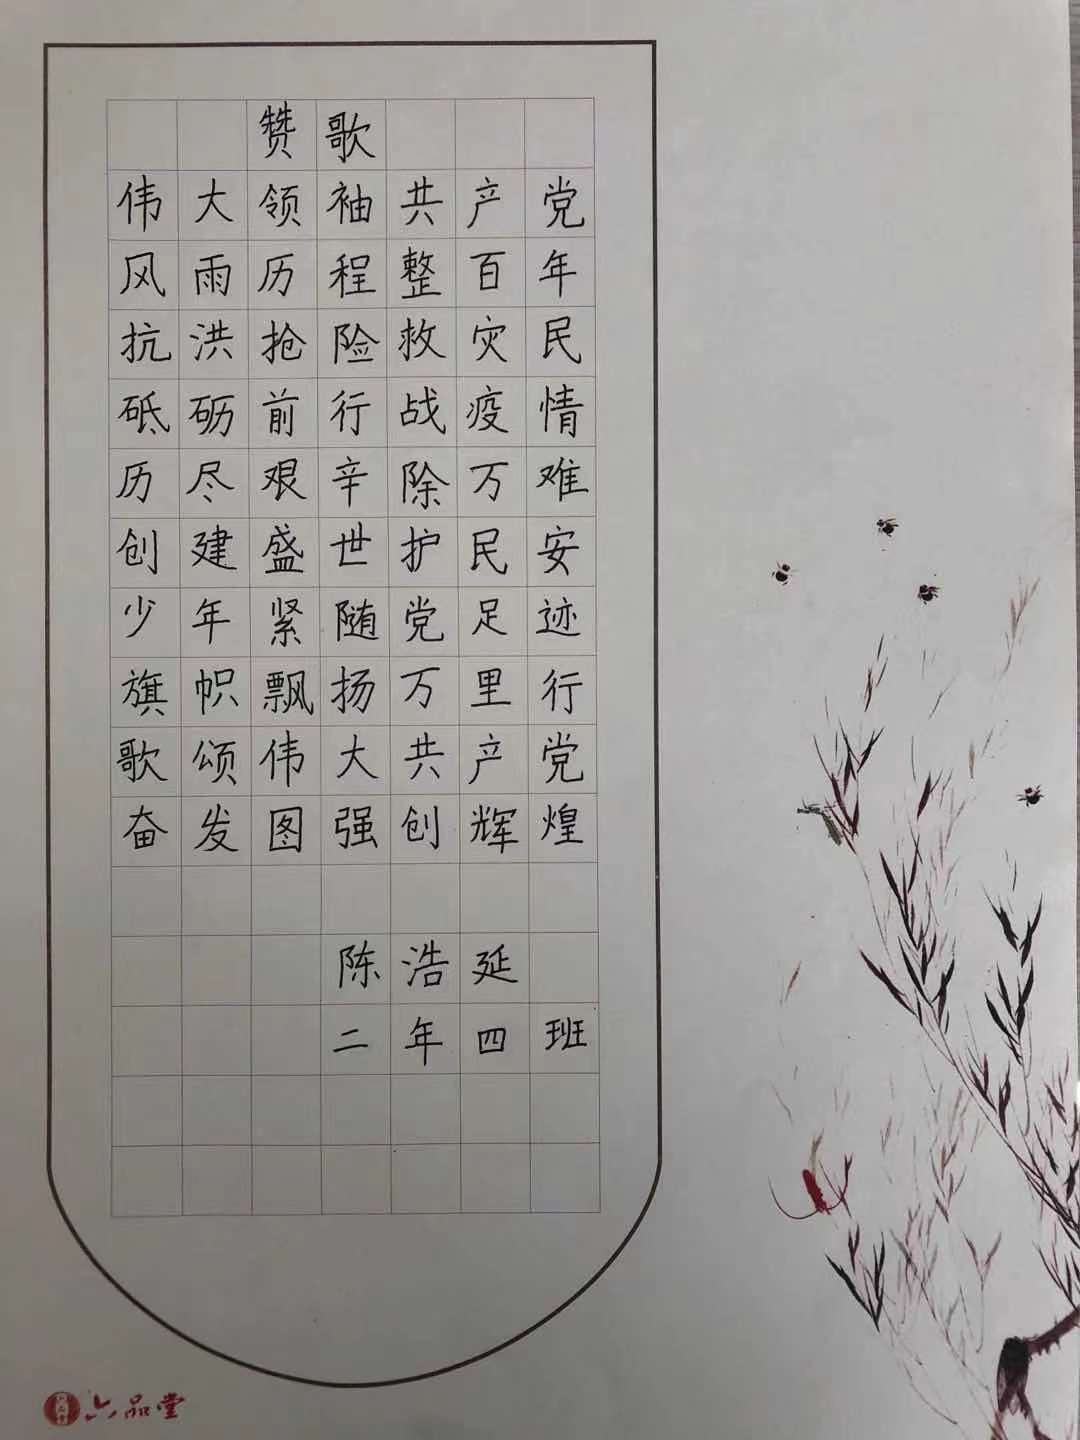 赞歌
伟大领袖共产党
风雨历程整百年
抗洪抢险救灾民
砥砺前行战疫情
历尽艰辛除万难
创建盛世护民安
少年紧随党足迹
旗帜飘扬万里行
歌颂伟大共产党
奋发图强创辉煌
陈浩延
二年四班
六品堂